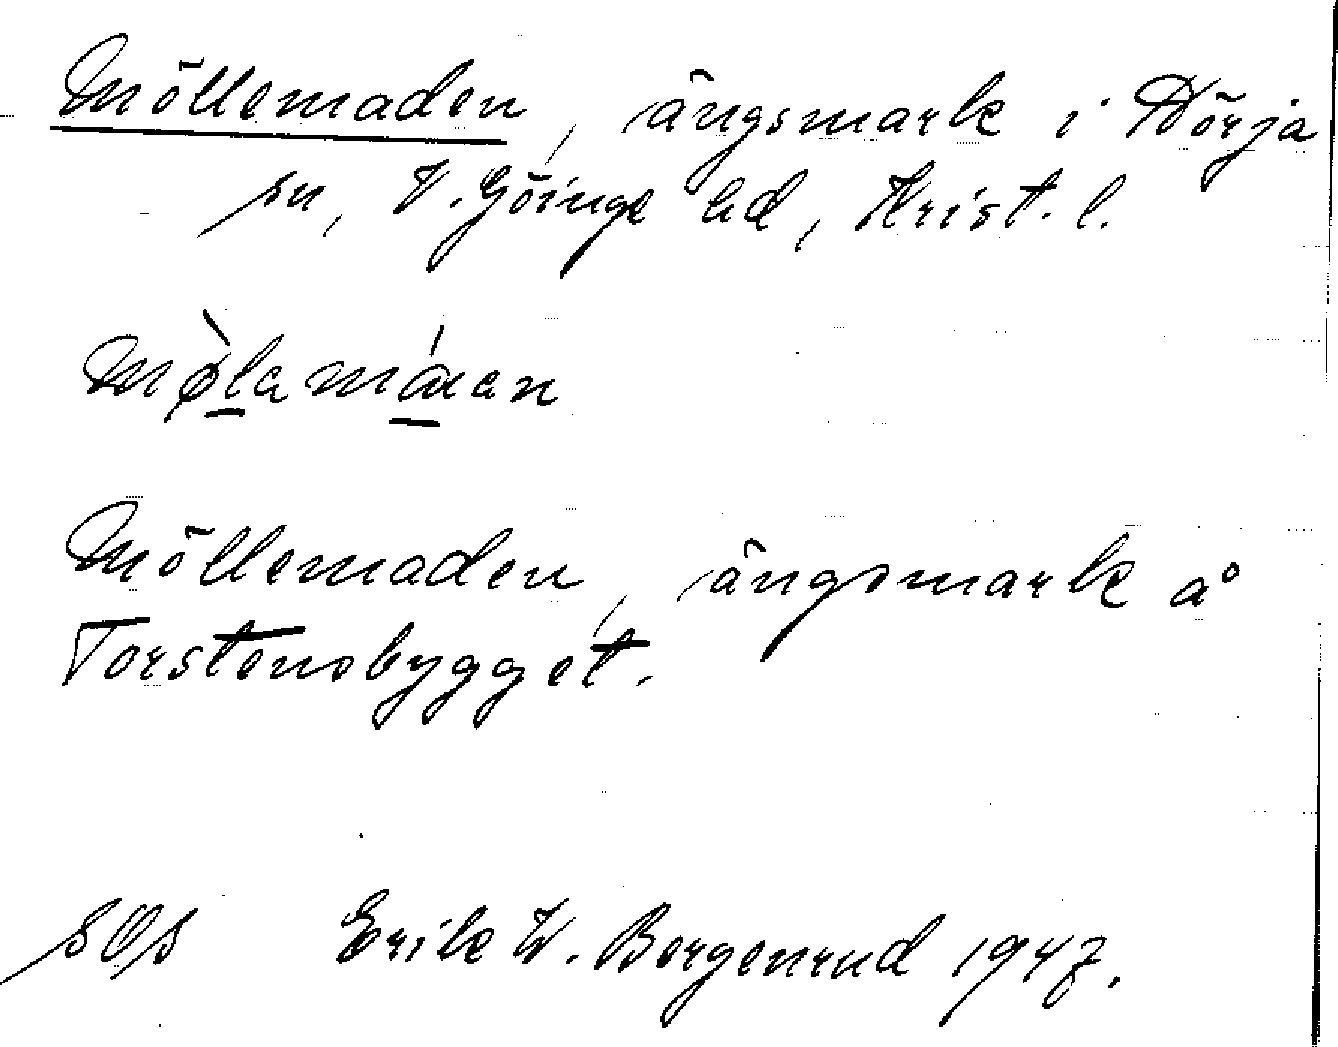 Möllemaden, ängsmark i Nörja
sn, V. Göinge hd, Krist. l.
Möllemaden, ängsmark å
Torstensbygget.
SOs Erik W. Bergenrud 1947.